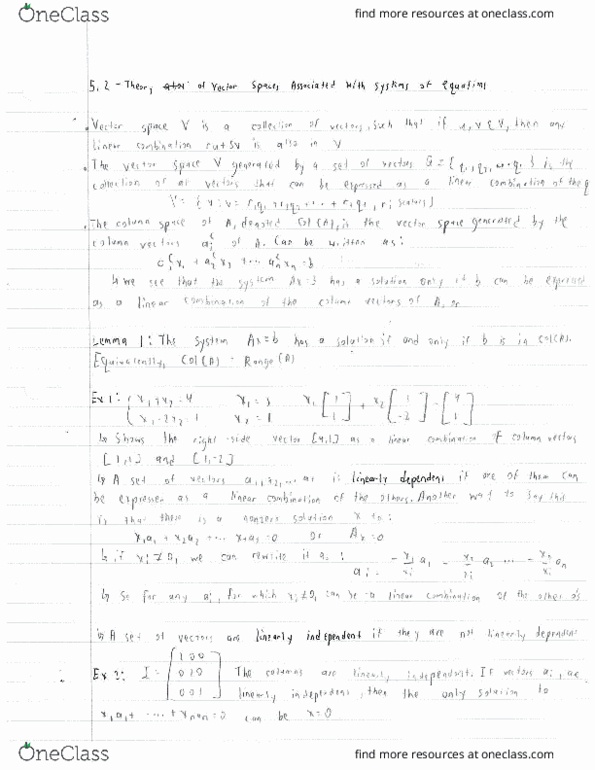 OneClass
find more resources at oneclass.com
5.2 - Theory of Vector Spaces Associated with systems of Equations
Vector space V is a collection of vectors, such that if u, v ∈ V, then any
linear combination ru+sv is also in V
The vector space V generated by a set of vectors G = {q1, q2, ... qr} is the
collection of all vectors that can be expressed as a linear combination of the q
V = {v : v = r1q1 + r2q2 + ... + rtqt, ri scalars}
The column space of A, denoted Col(A), is the vector space generated by the
column vectors of A. Can be written as:
↳ we see that the system Ax=b has a solution only if b can be expressed
as a linear combination of the column vectors of A, or
Lemma 1: The system Ax=b has a solution if and only if b is in Col(A).
Equivalently, Col(A) = Range(A)
Ex 1: x1 + x2 = 4 x1 = 3 x1 [1 1] + x2 [1 -2] = [4 1]
x1 - 2x2 = 1 x2 = 1
↳ Shows the right-side vector [4,1] as a linear combination of column vectors
[1,1] and [1,-2]
↳ A set of vectors a1, a2, ... ar is linearly dependent if one of them can
be expressed as a linear combination of the others. Another way to say this
is that there is a nonzero solution x to:
x1a1 + x2a2 ... x a =0 or Ax=0
↳ if xi ≠ 0, we can rewrite it as: ai = - x1/xi a1 - x2/xi a2 ... - xn/xi an
↳ So for any ai, for which xi ≠ 0, can be a linear combination of the other a's
↳ A set of vectors are linearly independent if they are not linearly dependent
Ex 2: I = [1 0 0 The columns are linearly independent. If vectors ai, are
0 1 0
0 0 1] linearly independent, then the only solution to
x1a1 + ... + xnan = 0 can be x=0
OneClass
find more resources at oneclass.com